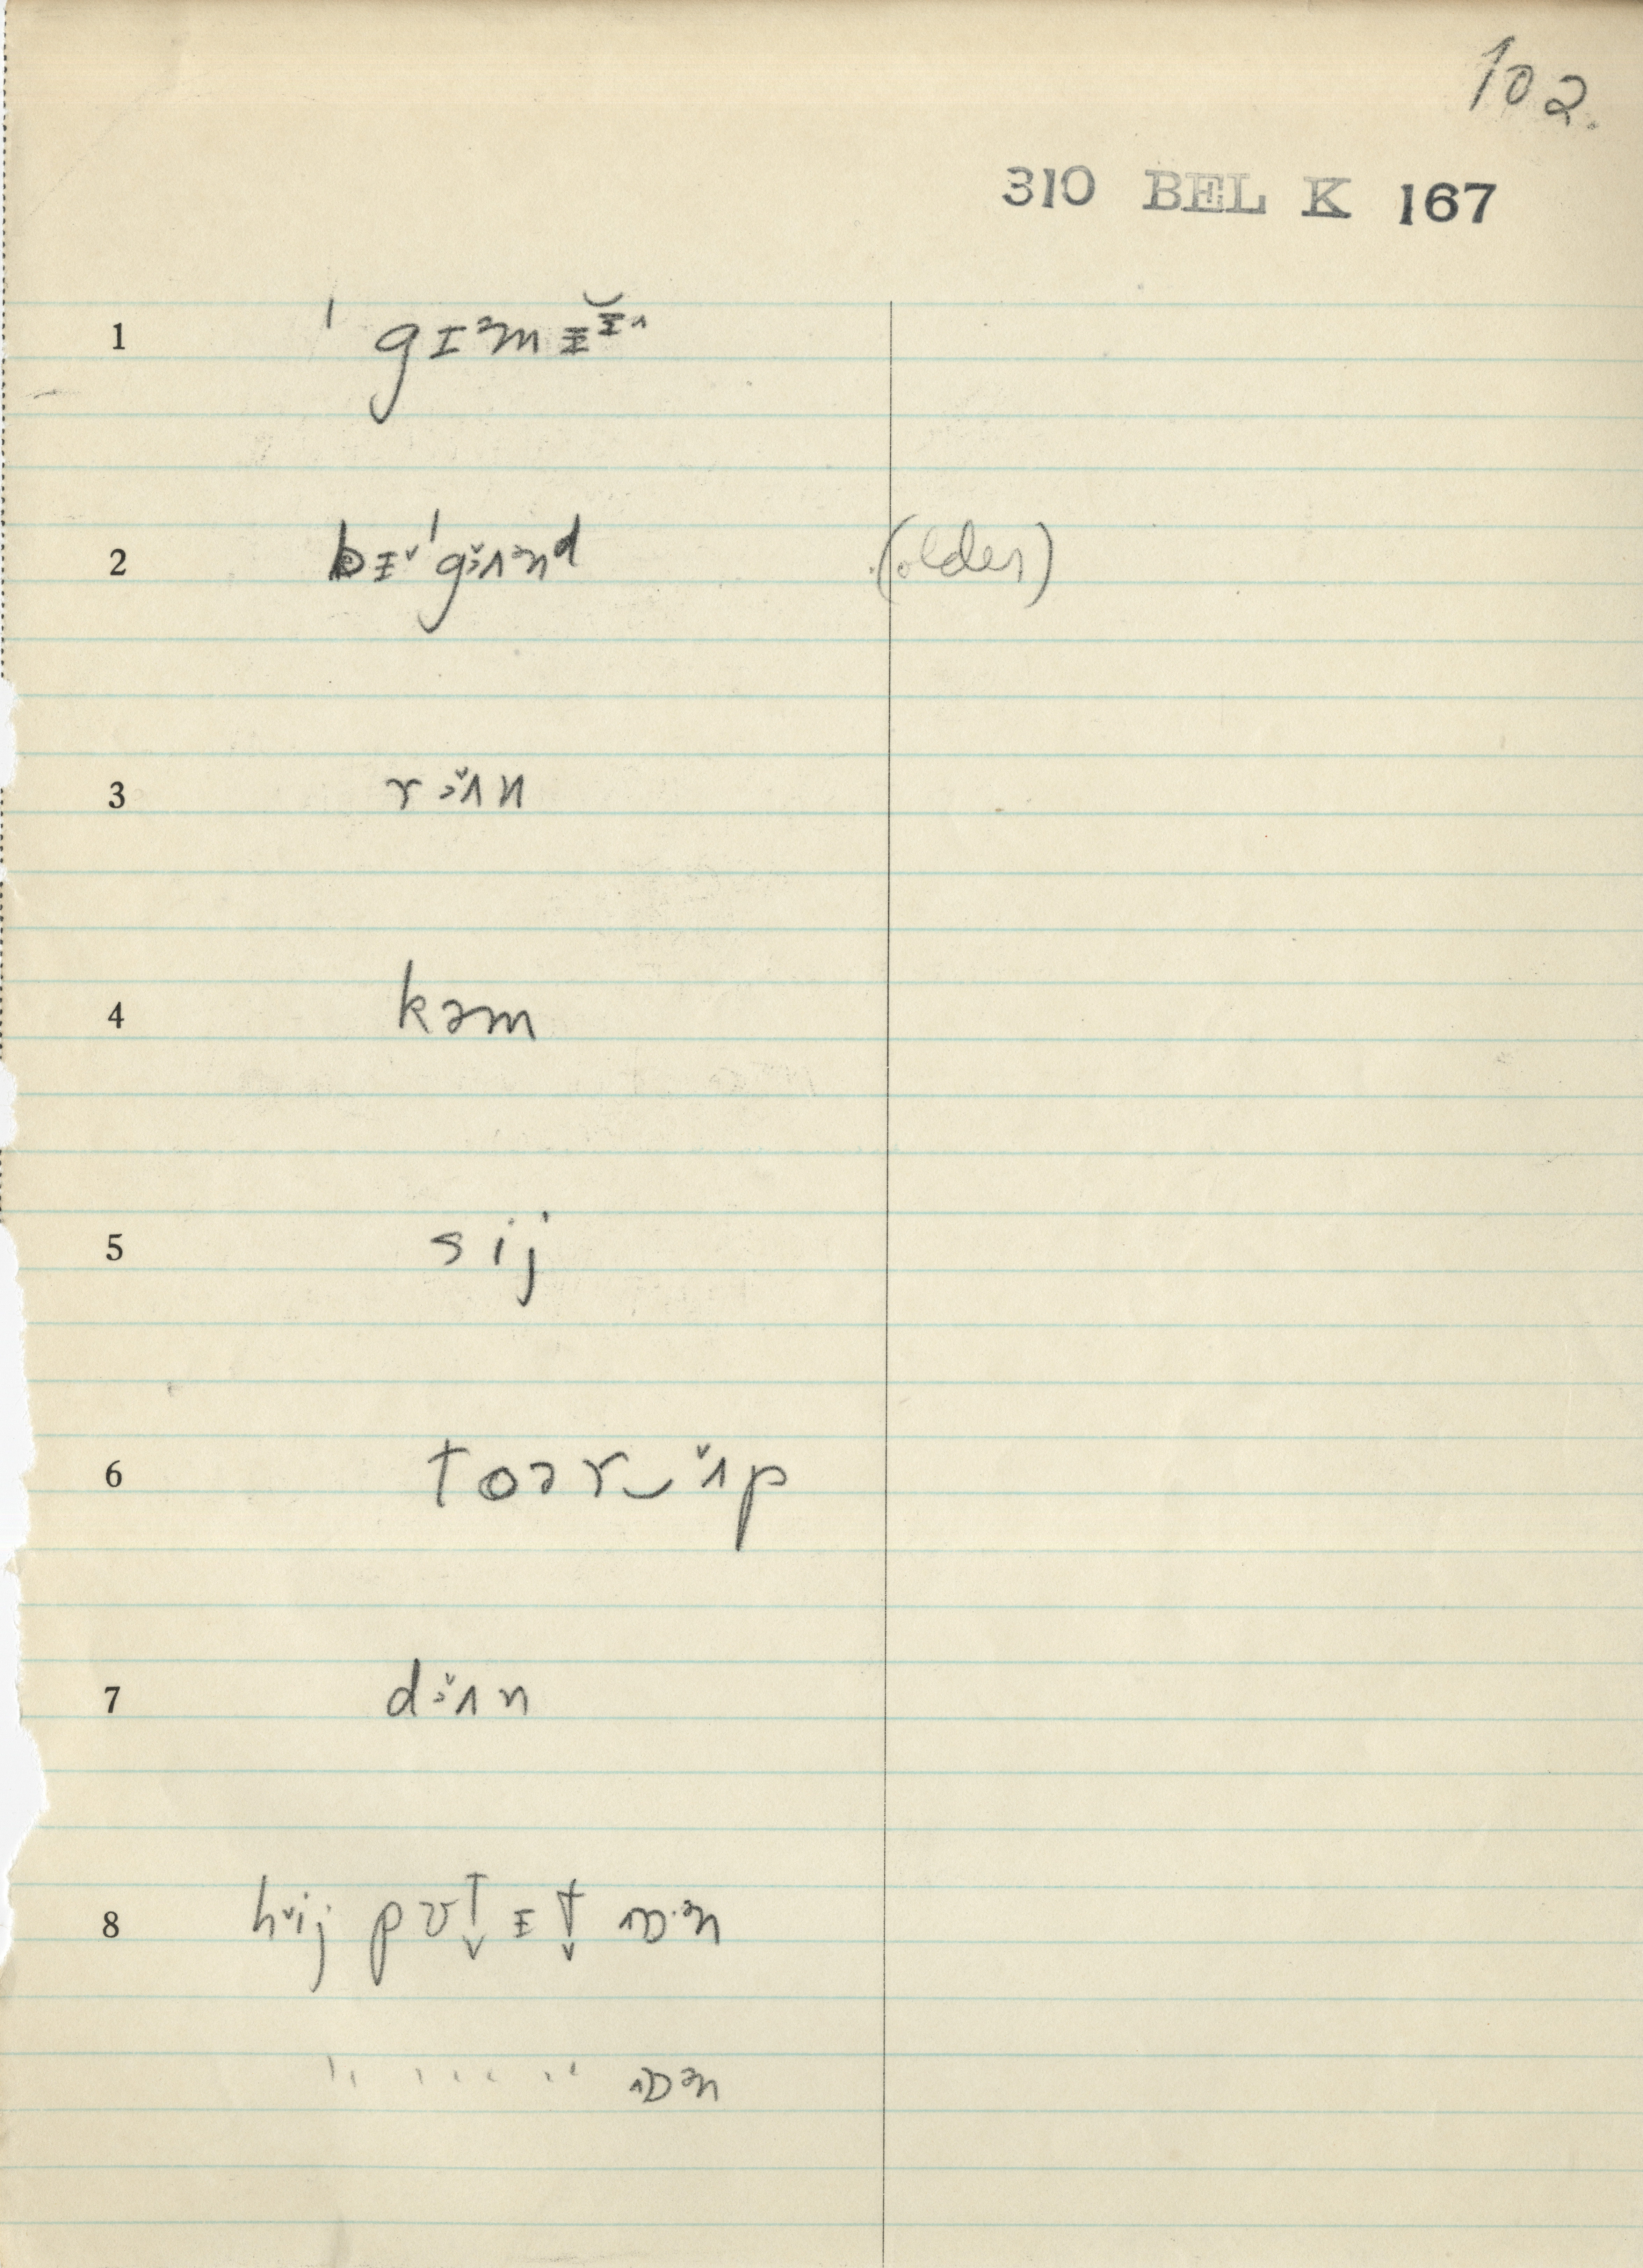 102.
310 BEL K 167
1 ˈgɪᵊmɨɨ̯̆˄
2 bɨ˅ˈgɜ̌˄ᵊnᵈ (older)
3 rɜ̌˄n
4 kəm
5 sij
6 toər‿ʌ̌p
7 dɜ̌˄n
8 h˅ij pʊt̬ɪt̬ ˄ɒ·ᵊn
˄ɒᵊn